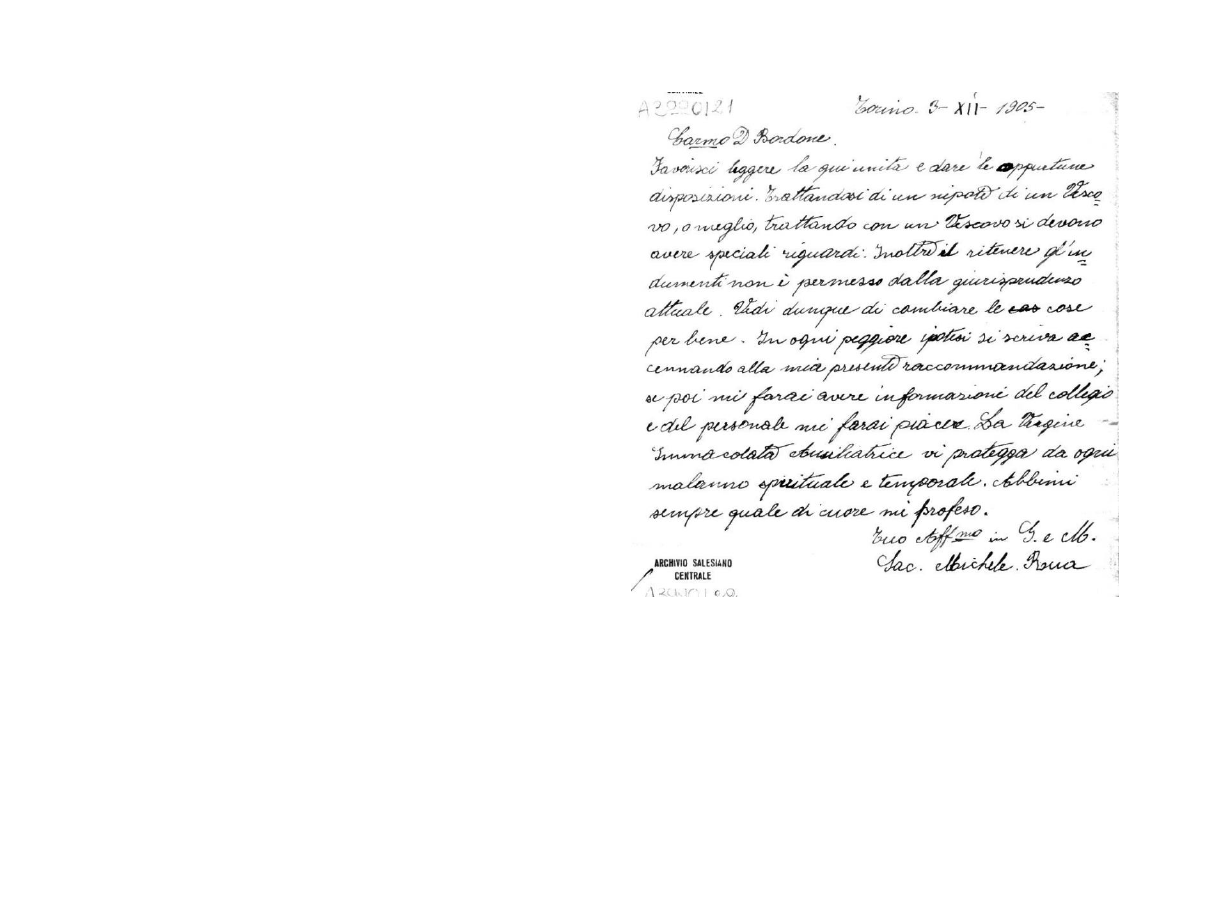 A2220121
Torino. 3- XII- 1905-
Carmo D Bordone.
Favorisci leggere la qui unita e dare le oppurtune
disposizioni. Trattandosi di un nipote di un Vesco
vo, o meglio, trattando con un Vescovo si devono
avere speciali riguardi. Inoltre il ritenere gl'in
dumenti non è permesso dalla giurisprudenza
attuale. Vedi dunque di combiare le cose
per bene. In ogni peggiore ipotesi si scriva ac
cennando alla mia presente raccommandazione;
se poi mi farai avere informazioni del collegio
e del personale mi farai piacere. La Vergine
Immacolata Ausiliatrice vi protegga da ogni
malanno spirituale e temporale. Abbimi
sempre quale di cuore mi profeso.
Tuo Affmo in G. e M.
Sac. Michele. Rua
ARCHIVIO SALESIANO
CENTRALE